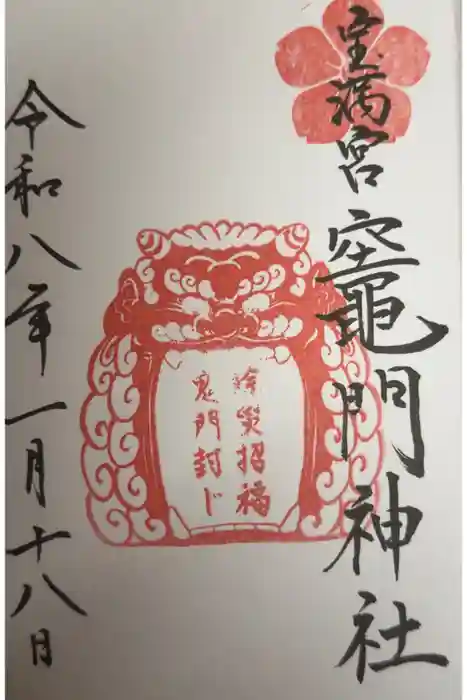 宝満宮 竈門神社
除災招福
鬼門封じ
令和八年一月十八日